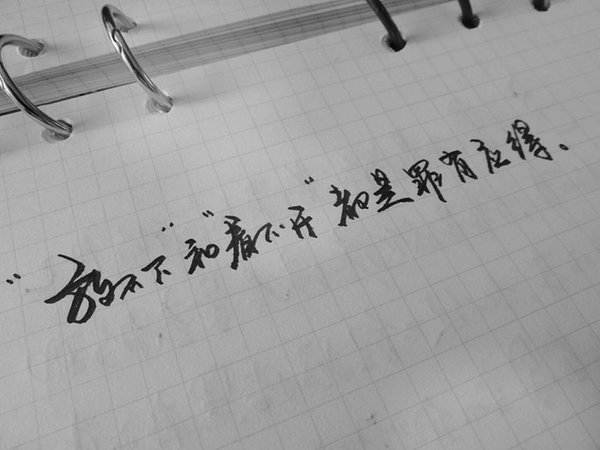 “放不下”和“看不开”都是罪有应得。